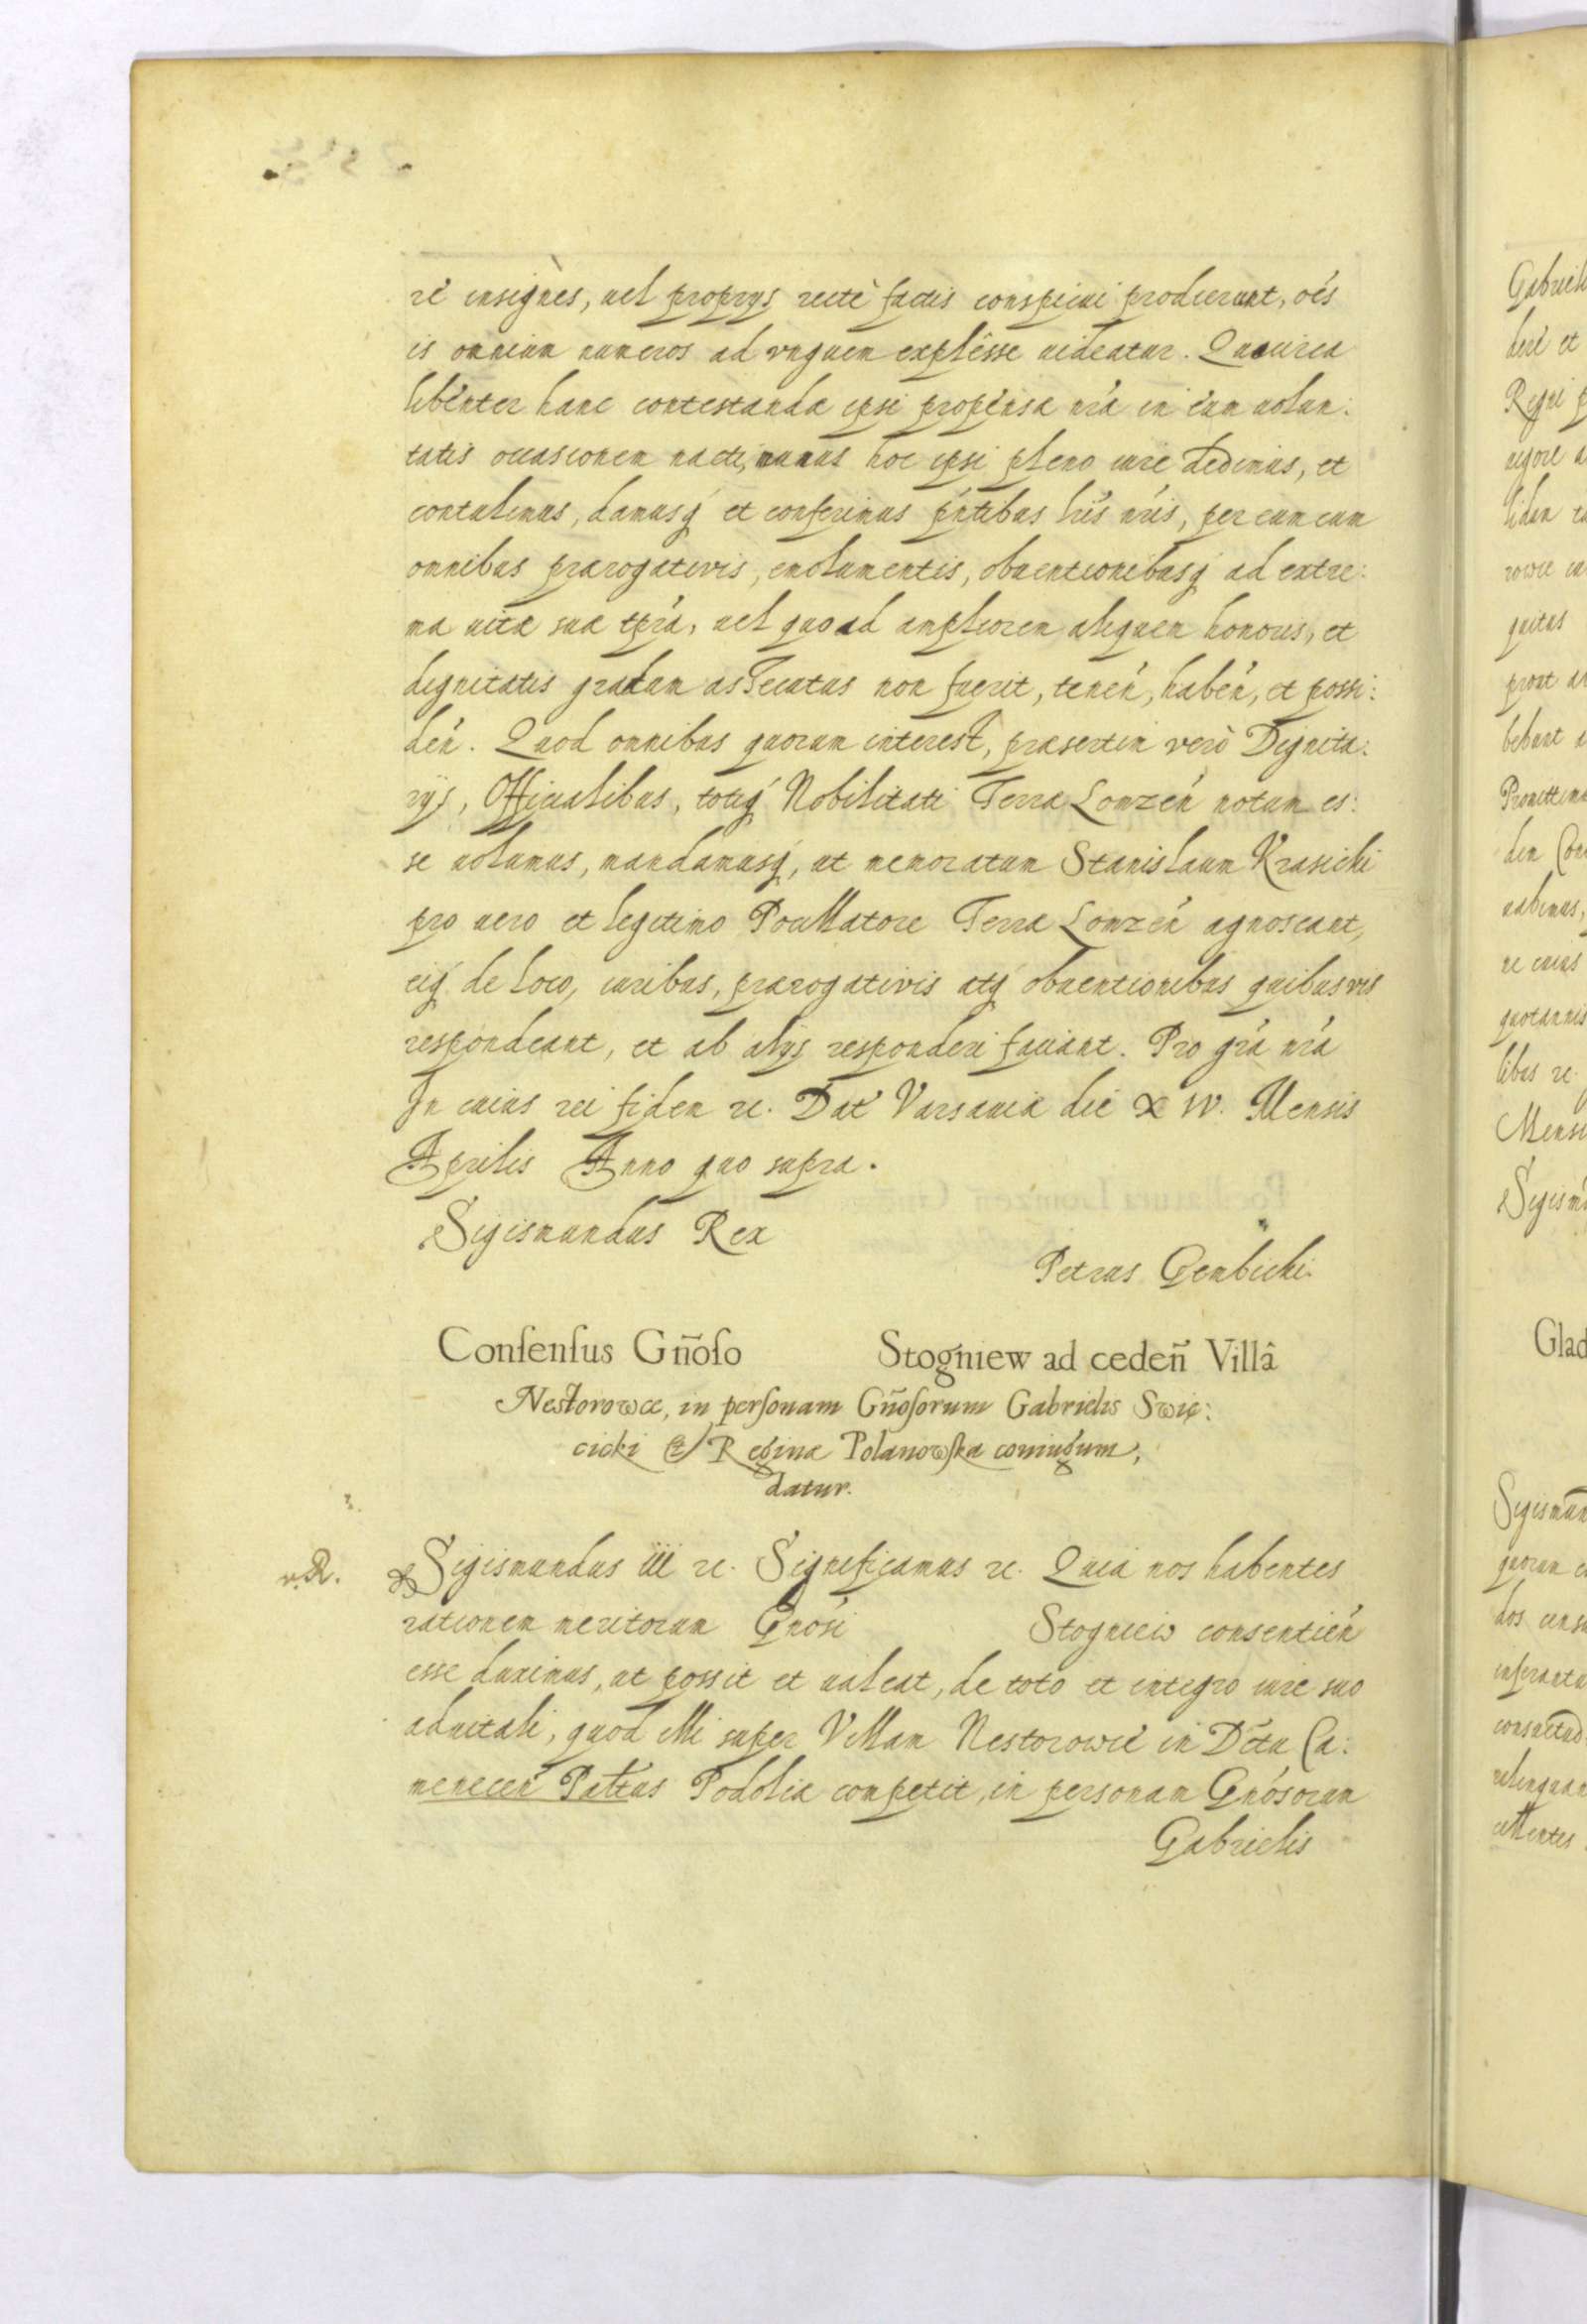 re insignes, uel proprys recte factis conspicui prodierunt, oés
is omnium numeros ad vnguem explêsse uideatur. Quocirca
libenter hanc contestandæ ipsi propensæ nrá in eum uolun:
tatis occasionem nacti, munus hoc ipsi pleno iure dedimus, et
contulimus, damusq́ et conferimus pńtibus lrís nrís, per eum cum
omnibus prærogatiuis, emolumentis, obuentionibusq́ ad extre:
ma uitæ suæ tprá, uel quoad ampliorem aliquem honoris, et
dignitatis gradum assecutus non fuerit, tenéń, habéń, et possi:
déń. Quod omnibus quorum interest, præsertim verò Dignita:
rijs, Officialibus, totiq́ Nobilitati Terræ Lomzeń notum es:
se uolumus, mandamusq́, ut memoratum Stanislaum Krasicki
pro uero et legitimo Pocillatore Terræ Lomzeń agnoscant,
eiq́ de loco, iuribus, prærogativis atq́ obuentionibus quibusvis
respondeant, et ab alijs responderi faciant. Pro grá nrá
In cuius rei fidem rc. Dat Varsauiæ die XIV. Mensis
Aprilis Anno quo supra.
Sigismundus Rex
Petrus Gembicki.
Conſenſus Gñoſo Stogniew ad cedeñ Villâ
Nestorowce, in perſonam Gñoſorum Gabrielis Swię:
cicki & Reginæ Polanowſka coniugum,
datur.
n.R. Sigismundus iii rc. Significamus rc. Quia nos habentes
rationem meritorum Gnósi Stogniew consentień
esse duximus, ut possit et ualeat, de toto et integro iure suo
aduitali, quod illi super Villam Nestorowce in Dćtu Ca:
meneceń Palttus Podoliæ competit, in personam Gnósorum
Gabrielis